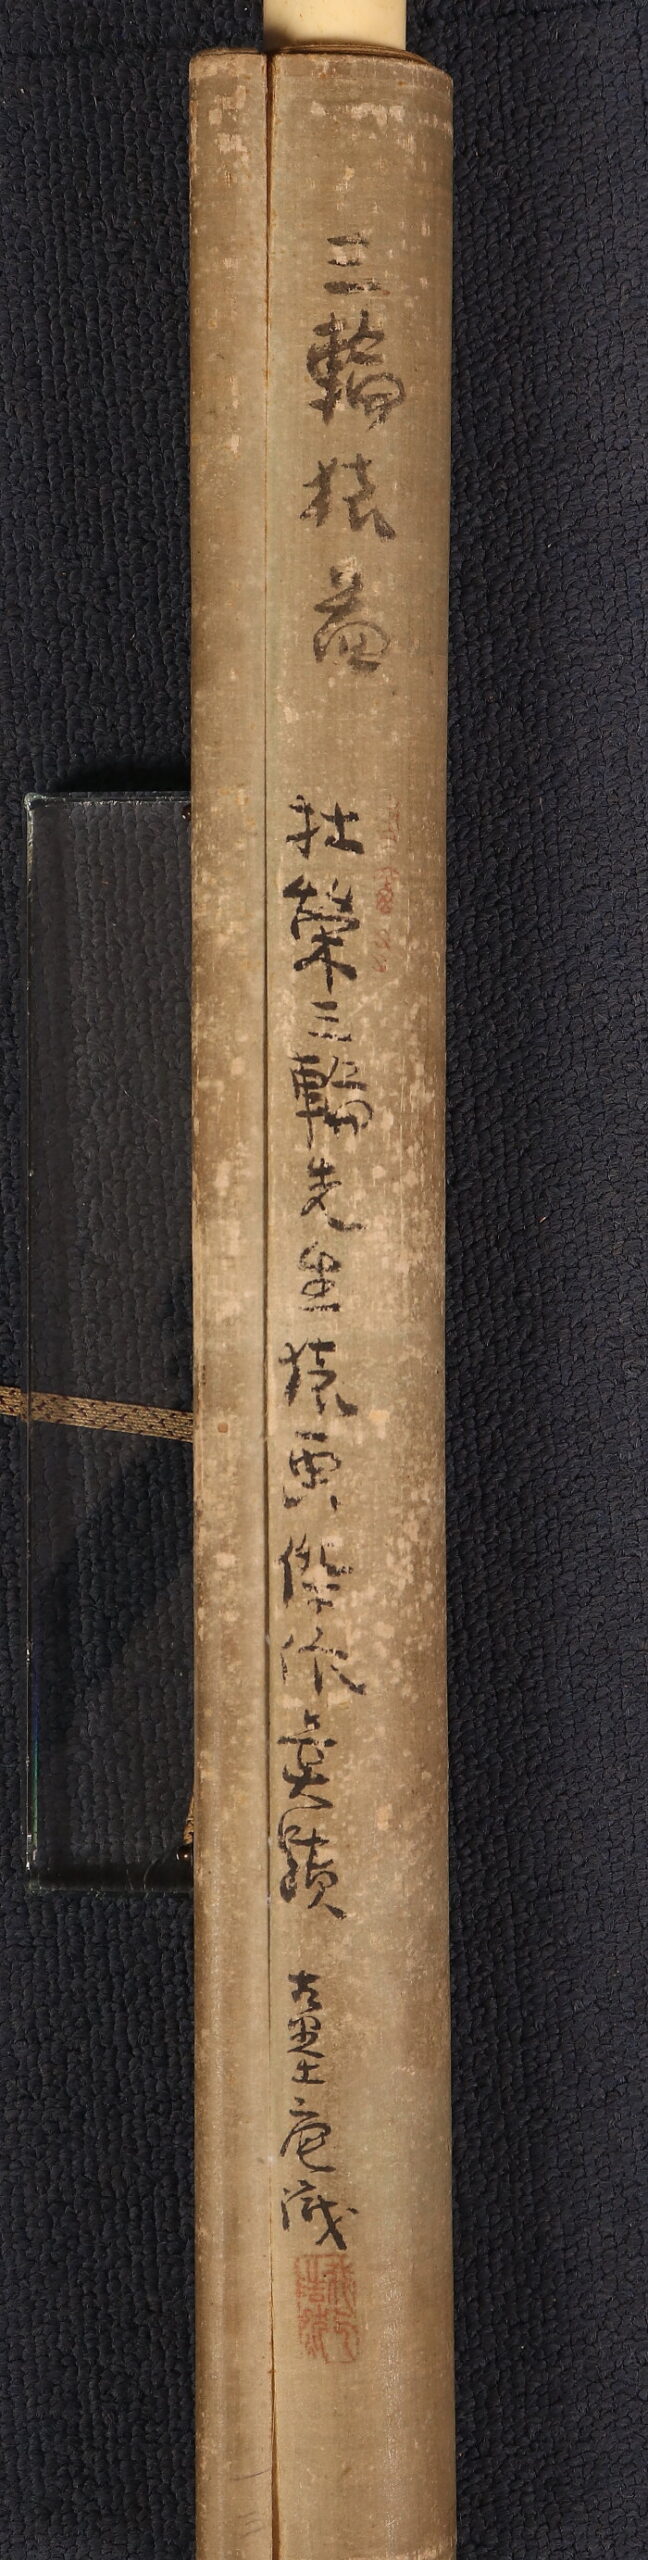 三輪猿畫
林榮三輪先生猿画傑作真蹟
古墨庵識